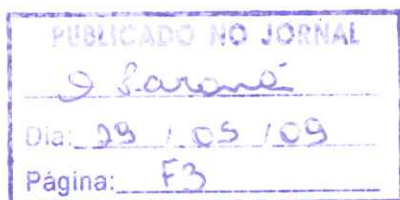 PUBLICADO NO JORNAL
O Paraná
Dia: 29 / 05 / 09
Página: F3